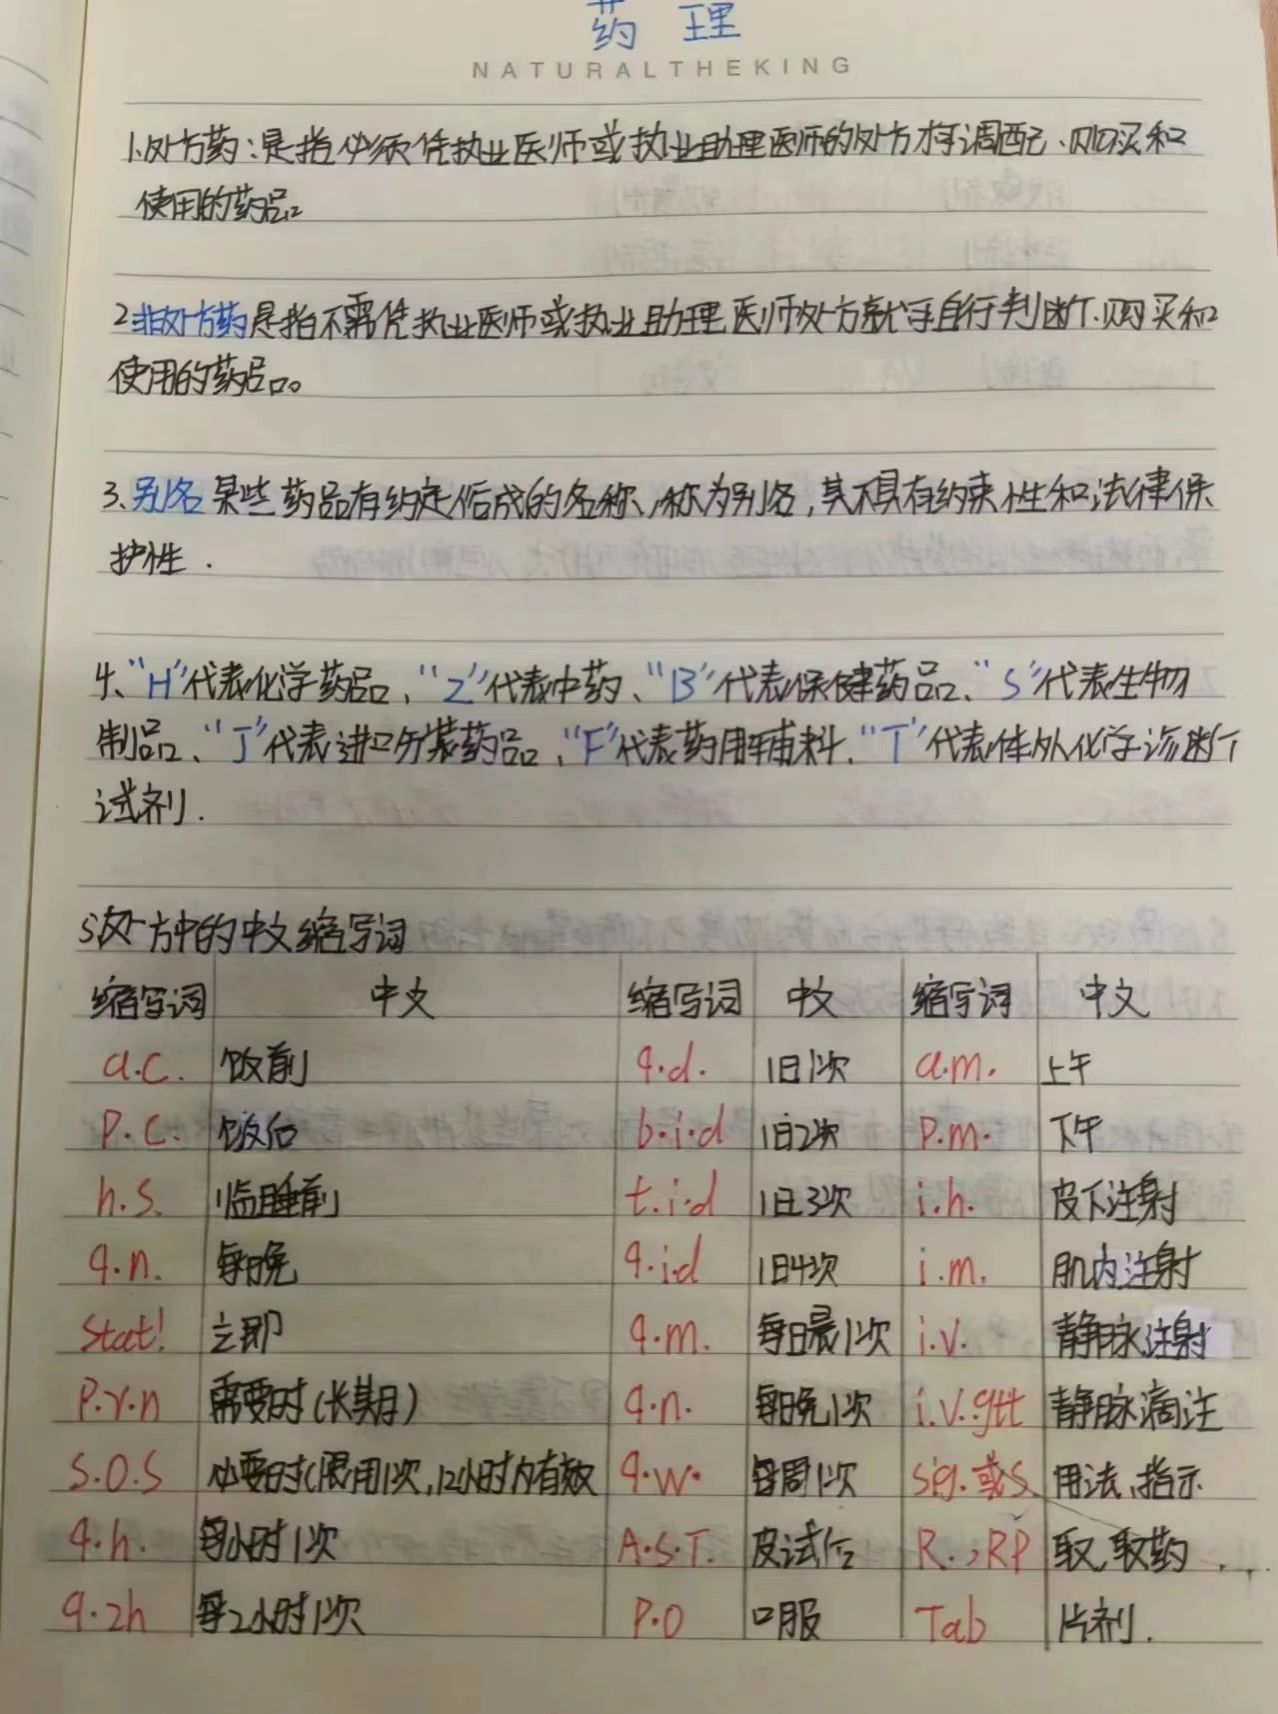 药理
NATURALTHEKING
1.处方药：是指必须凭执业医师或执业助理医师的处方才调配、购买和
使用的药品
2.非处方药是指不需凭执业医师或执业助理医师处方就可自行判断、购买和
使用的药品。
3.别名 某些药品有约定俗成的名称、称为别名，其不具有约束性和法律保
护性.
4、“H”代表化学药品、“Z”代表中药、“B”代表保健药品、“S”代表生物
制品、“J”代表进口分装药品、“F”代表药用辅料、“T”代表体外化学诊断
试剂.
5.处方中的中文缩写词
缩写词 中文 缩写词 中文 缩写词 中文
a.c. 饭前 q.d. 1日1次 a.m. 上午
P.C. 饭后 b.i.d 1日2次 P.m. 下午
h.s. 临睡前 t.i.d 1日3次 i.h. 皮下注射
q.n. 每晚 q.i.d 1日4次 i.m. 肌内注射
Stat! 立即 q.m. 每日晨1次 i.v. 静脉注射
P.r.n 需要时(长期) q.n. 每晚1次 i.v.gtt 静脉滴注
S.O.S 必要时(限用1次,12小时内有效 q.w. 每周1次 sig.或S. 用法、指示
q.h. 每小时1次 A.S.T. 皮试后 R.,RP 取、取药
q.2h 每2小时1次 P.O 口服 Tab 片剂.